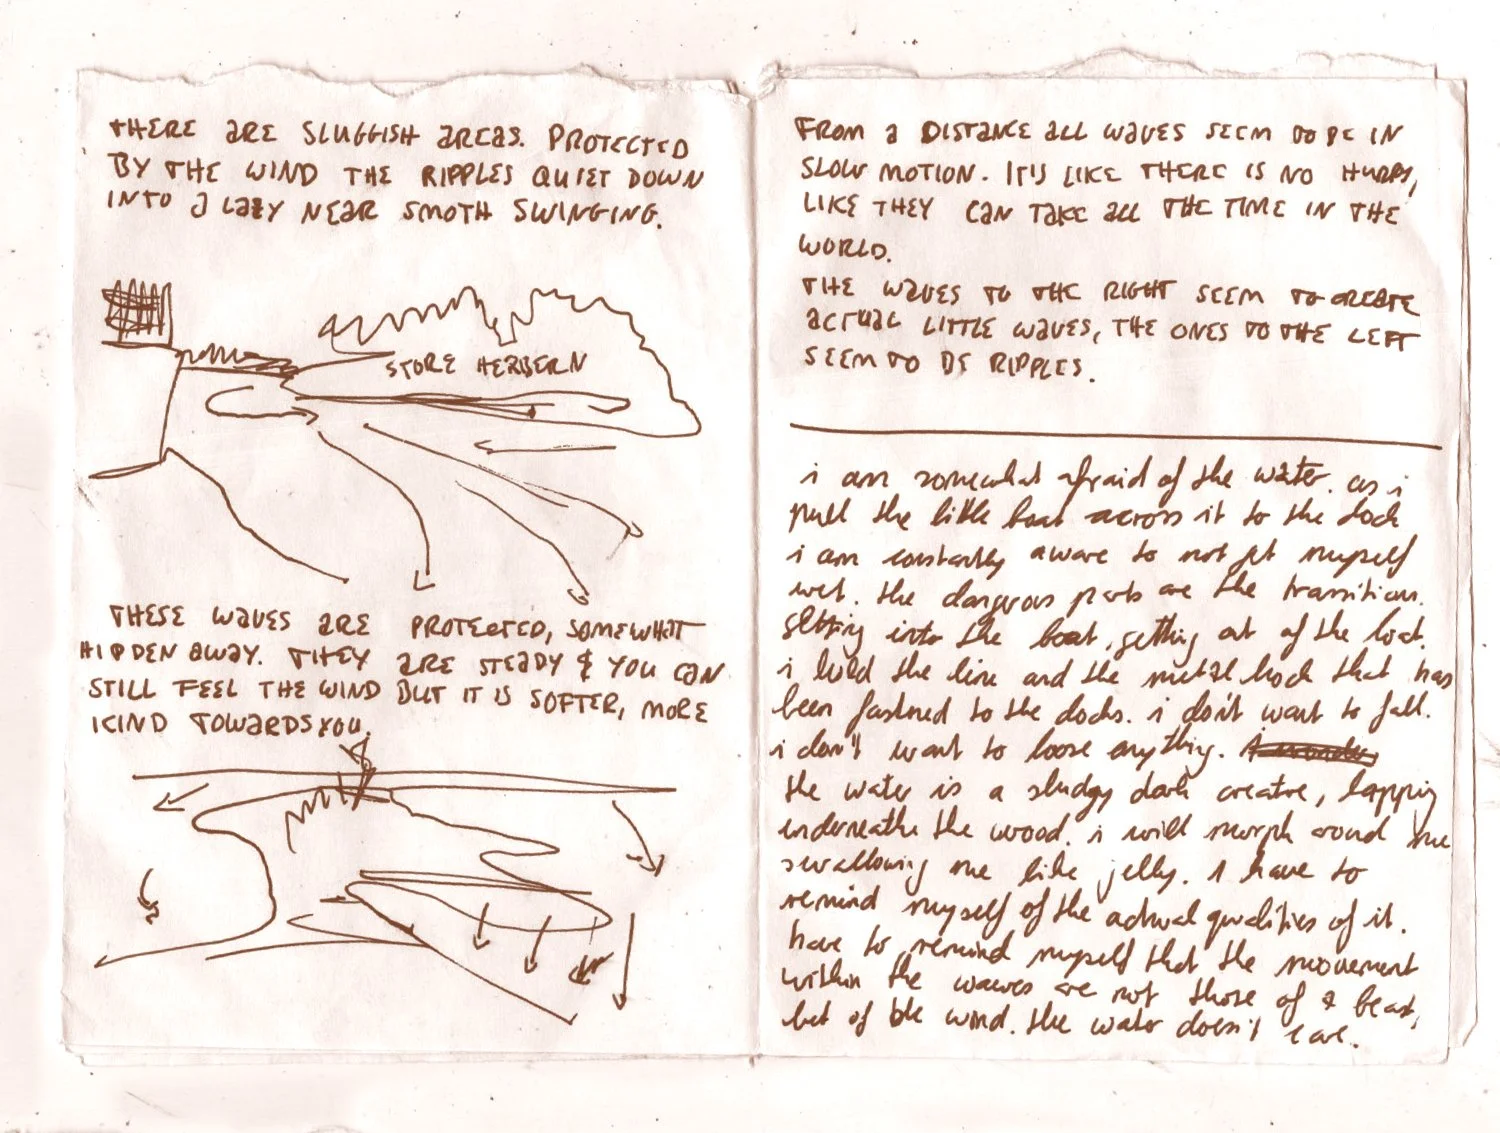 THERE ARE SLUGGISH AREAS. PROTECTED
BY THE WIND THE RIPPLES QUIET DOWN
INTO A LAZY NEAR SMOTH SWINGING.
STORE HERBERN
THESE WAVES ARE PROTECTED, SOMEWHAT
HIDDEN AWAY. THEY ARE STEADY & YOU CAN
STILL FEEL THE WIND BUT IT IS SOFTER, MORE
KIND TOWARDS YOU.
FROM A DISTANCE ALL WAVES SEEM TO BE IN
SLOW MOTION. IT'S LIKE THERE IS NO HURRY,
LIKE THEY CAN TAKE ALL THE TIME IN THE
WORLD.
THE WAVES TO THE RIGHT SEEM TO CREATE
ACTUAL LITTLE WAVES, THE ONES TO THE LEFT
SEEM TO BE RIPPLES.
i am somewhat afraid of the water. as i
pull the little boat across it to the dock
i am constantly aware to not get myself
wet. the dangerous parts are the transition.
getting into the boat, getting out of the boat.
i hold the line and the metal hook that has
been fastned to the docks. i don't want to fall.
i don't want to loose anything.
the water is a sludgy dark creatre, lapping
underneathe the wood. i will morph around me
swallowing me like jelly. i have to
remind myself of the actual qualities of it.
have to remind myself that the movement
within the waves are not those of a beast,
but of the wind. the water doesn't care.